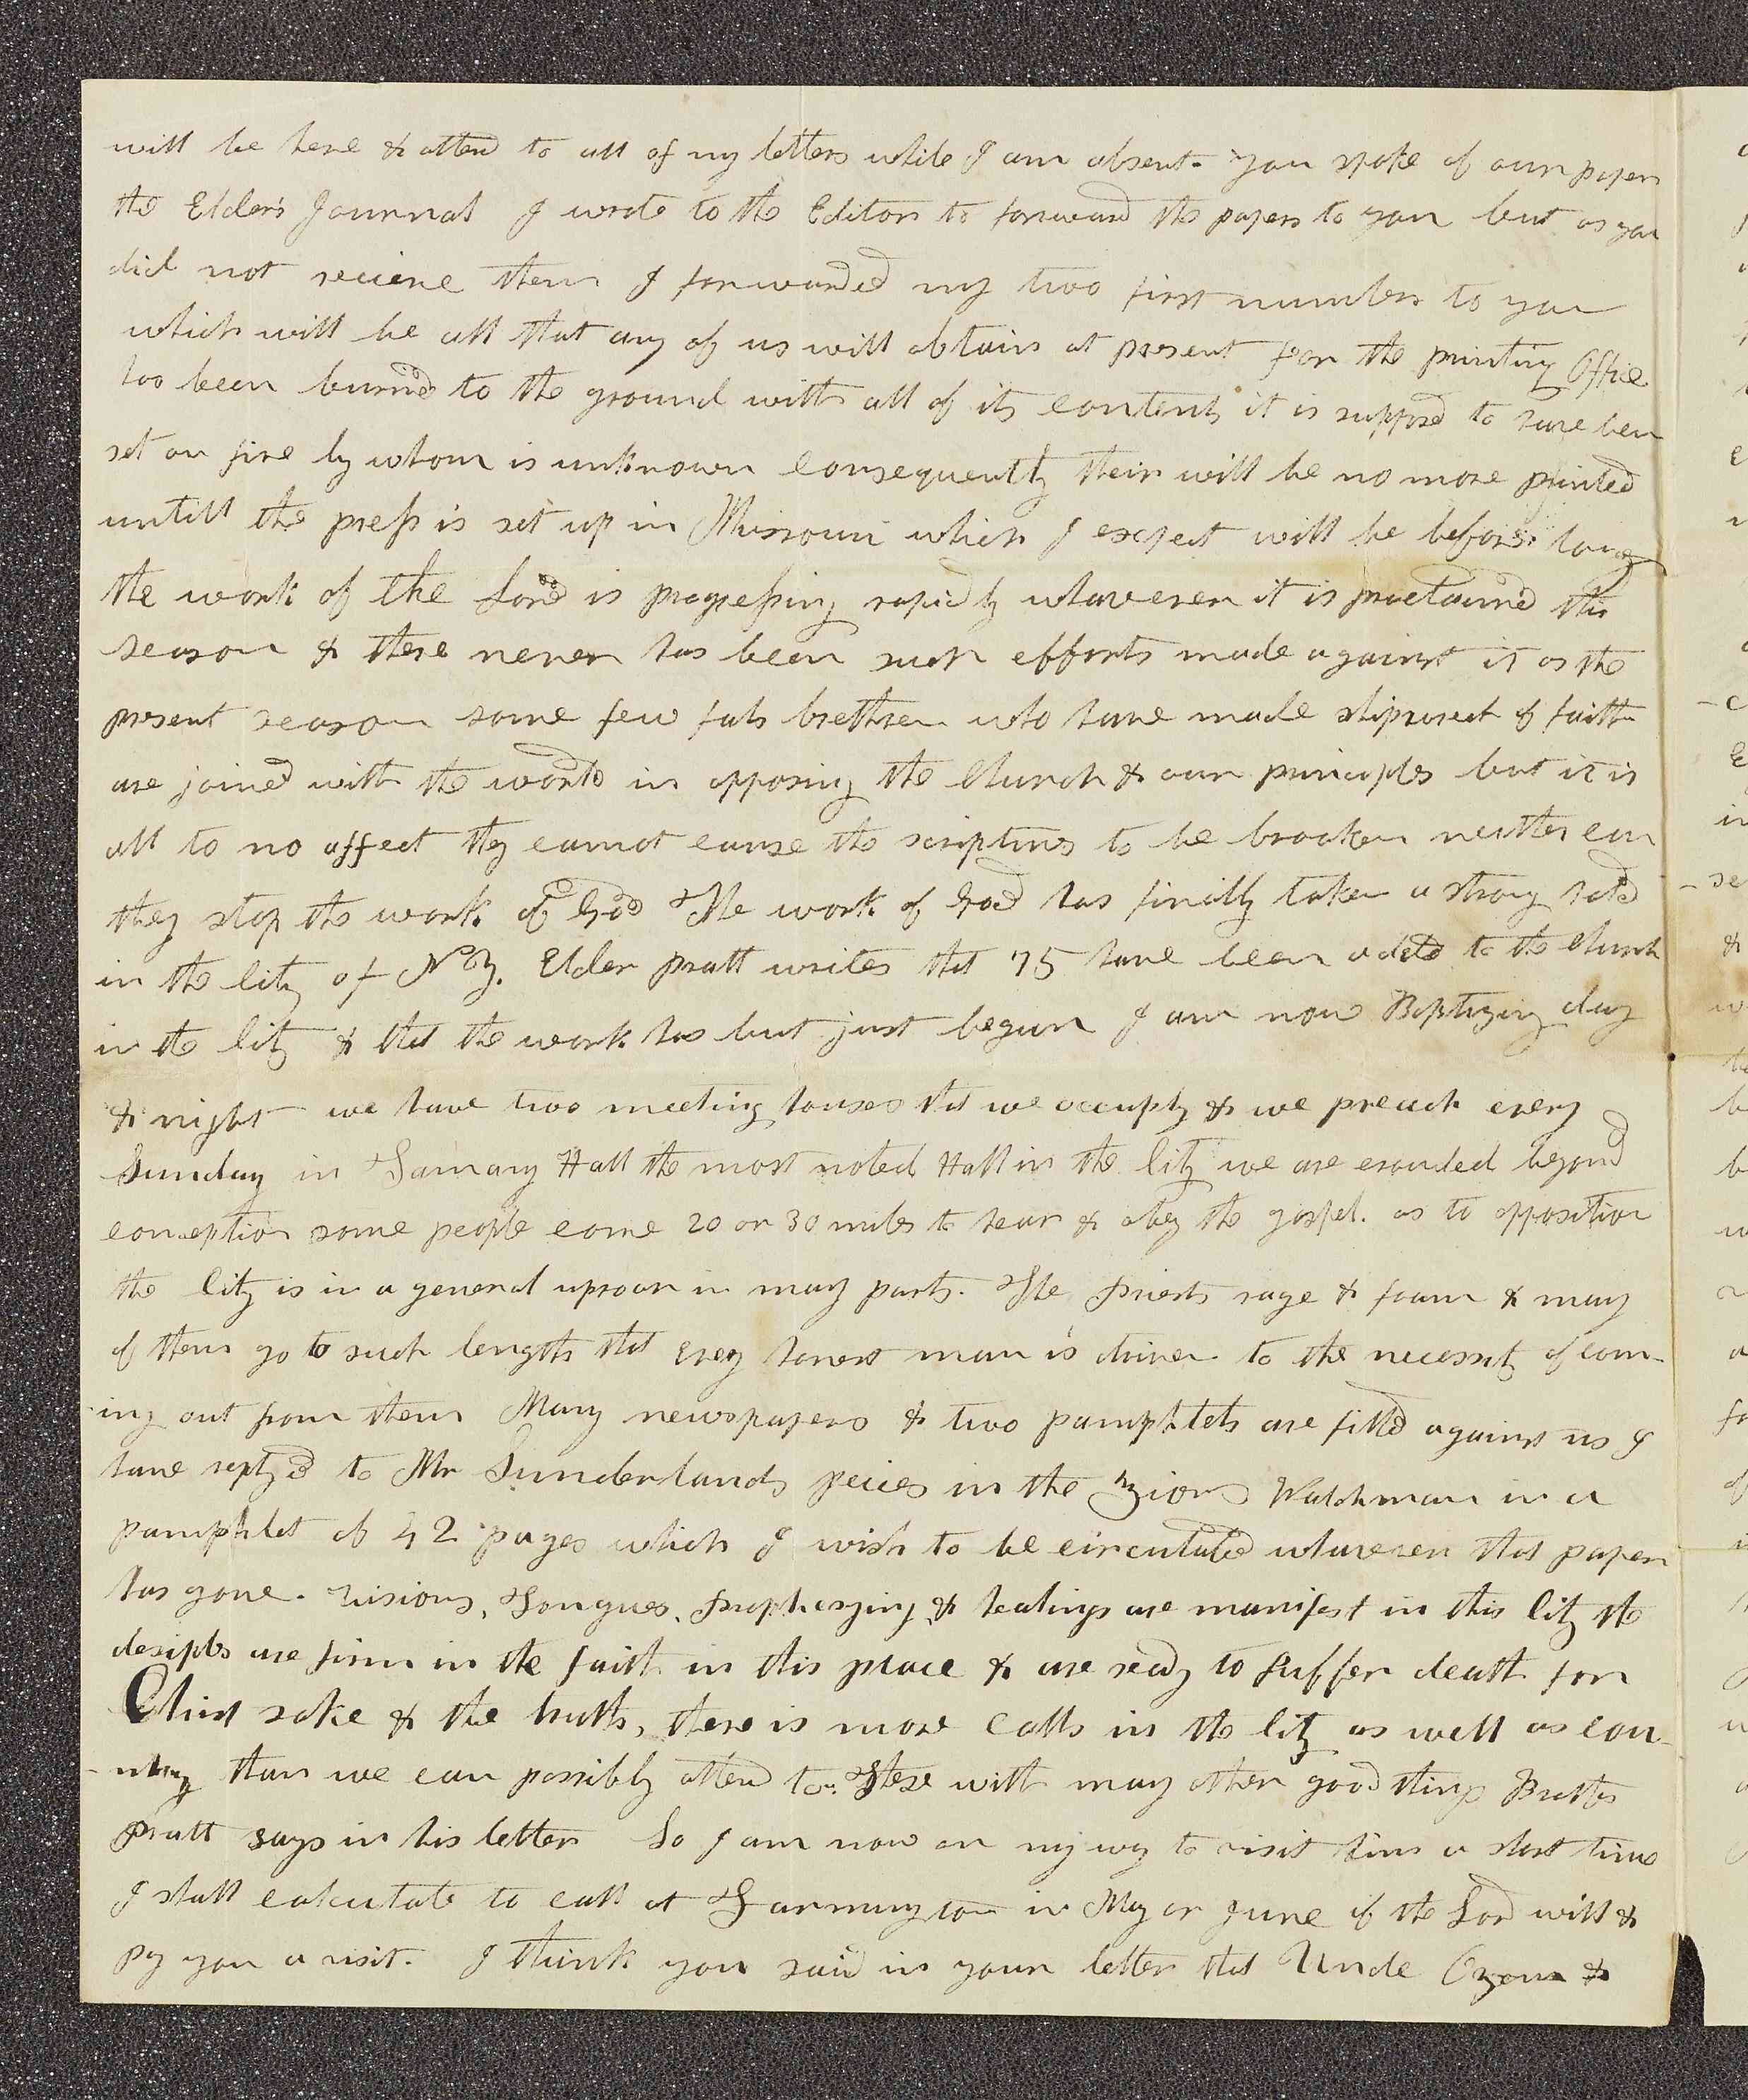 will be here & attend to all of my letters while I am absent. You spoke of our paper
the Elder's Journal I wrote to the Editor to forward the papers to you but as you
did not recieve them I forwarded my two first numbers to you
which will be all that any of us will obtain at present for the printing Office
has been burned to the ground with all of its contents it is supposed to have been
set on fire by whom is unknown consequently their will be no more printed
untill the press is set up in Missouri which I expect will be before long
the work of the Lord is progressing rapidly wharever it is proclaimed this
season & there never has been such efforts made against it as the
present season some few fals brethren who have made shipwreck of faith
are joined with the world in opposing the Church & our principles but it is
all to no affect they cannot cause the scriptures to be broaken neither can
they stop the work of God The work of God has finally taken a strong hold
in the City of N.Y. Elder pratt writes that 75 have been aded to the Church
in the City & that the work has but just begun I am now Baptizing day
& night we have two meeting houses that we occuply & we preach every
Sunday in Tamany Hall the most noted Hall in the City we are crouded beyond
conception some people come 20 or 30 miles to hear & obey the gospel. as to opposition
the City is in a general uproar in many parts. The Priests rage & foam & many
of them go to such lengths that every honest man is driven to the necessity of com-
ing out from them Many newspapers & two pamphlets are filled against us I
have replyed to Mr Sunderlands peices in the Zions Watchman in a
pamphlet of 42 pages which I wish to be circulated wharever that paper
has gone. Visions, Tongues, Prophesying & healings are manifest in this City the
desiples are firm in the faith in this place & are ready to Suffer death for
Christ sake & the truths, there is more Calls in the City as well as cou-
-ntry than we can possibly attend to. These with many other good things Brother
Pratt says in his letter So I am now on my way to visit him a short time
I shall calculate to call at Farmington in May or June if the Lord will &
pay you a visit. I think you said in your letter that Uncle Ozem &